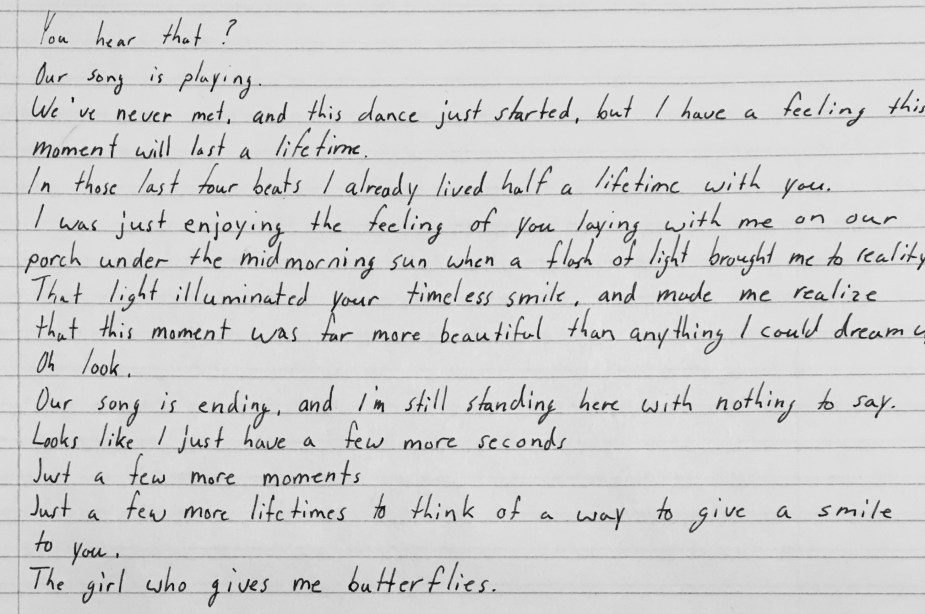 You hear that?
Our song is playing.
We've never met, and this dance just started, but I have a feeling this
moment will last a lifetime.
In those last four beats I already lived half a lifetime with you.
I was just enjoying the feeling of you laying with me on our
porch under the midmorning sun when a flash of light brought me to reality
That light illuminated your timeless smile, and made me realize
that this moment was far more beautiful than anything I could dream
Oh look.
Our song is ending, and I'm still standing here with nothing to say.
Looks like I just have a few more seconds
Just a few more moments
Just a few more lifetimes to think of a way to give a smile
to you.
The girl who gives me butterflies.